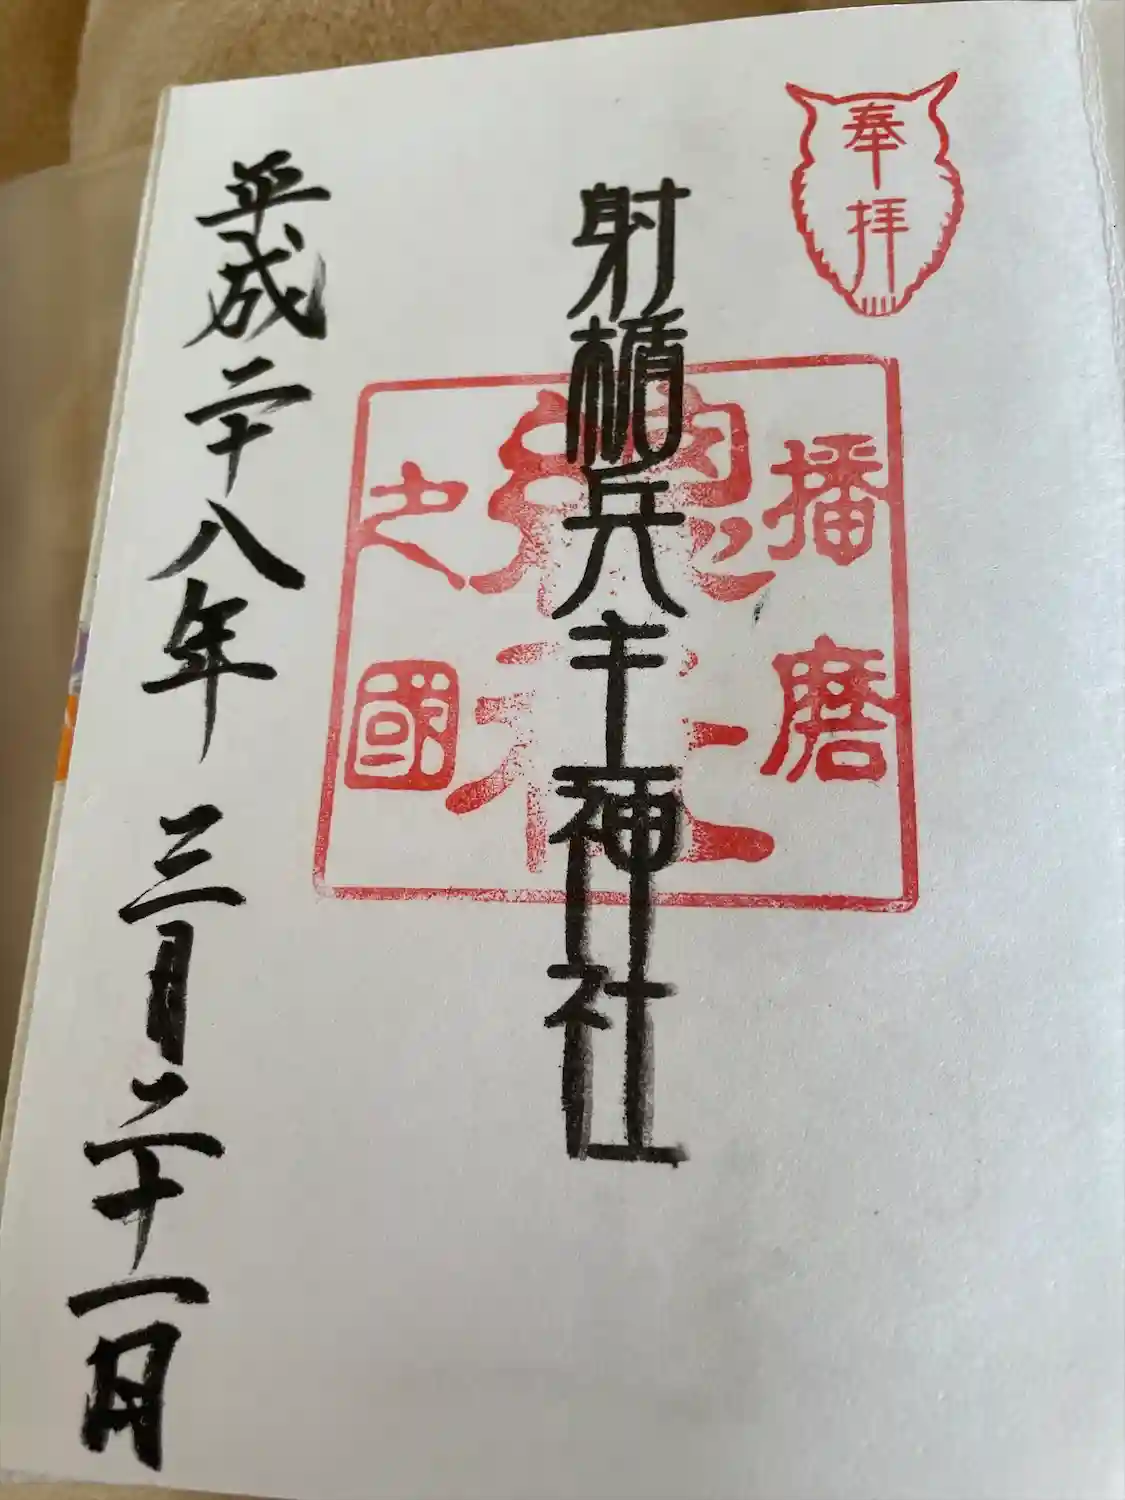 奉拝
播磨
總社
之國
射楯兵主神社
平成二十八年 三月二十一日